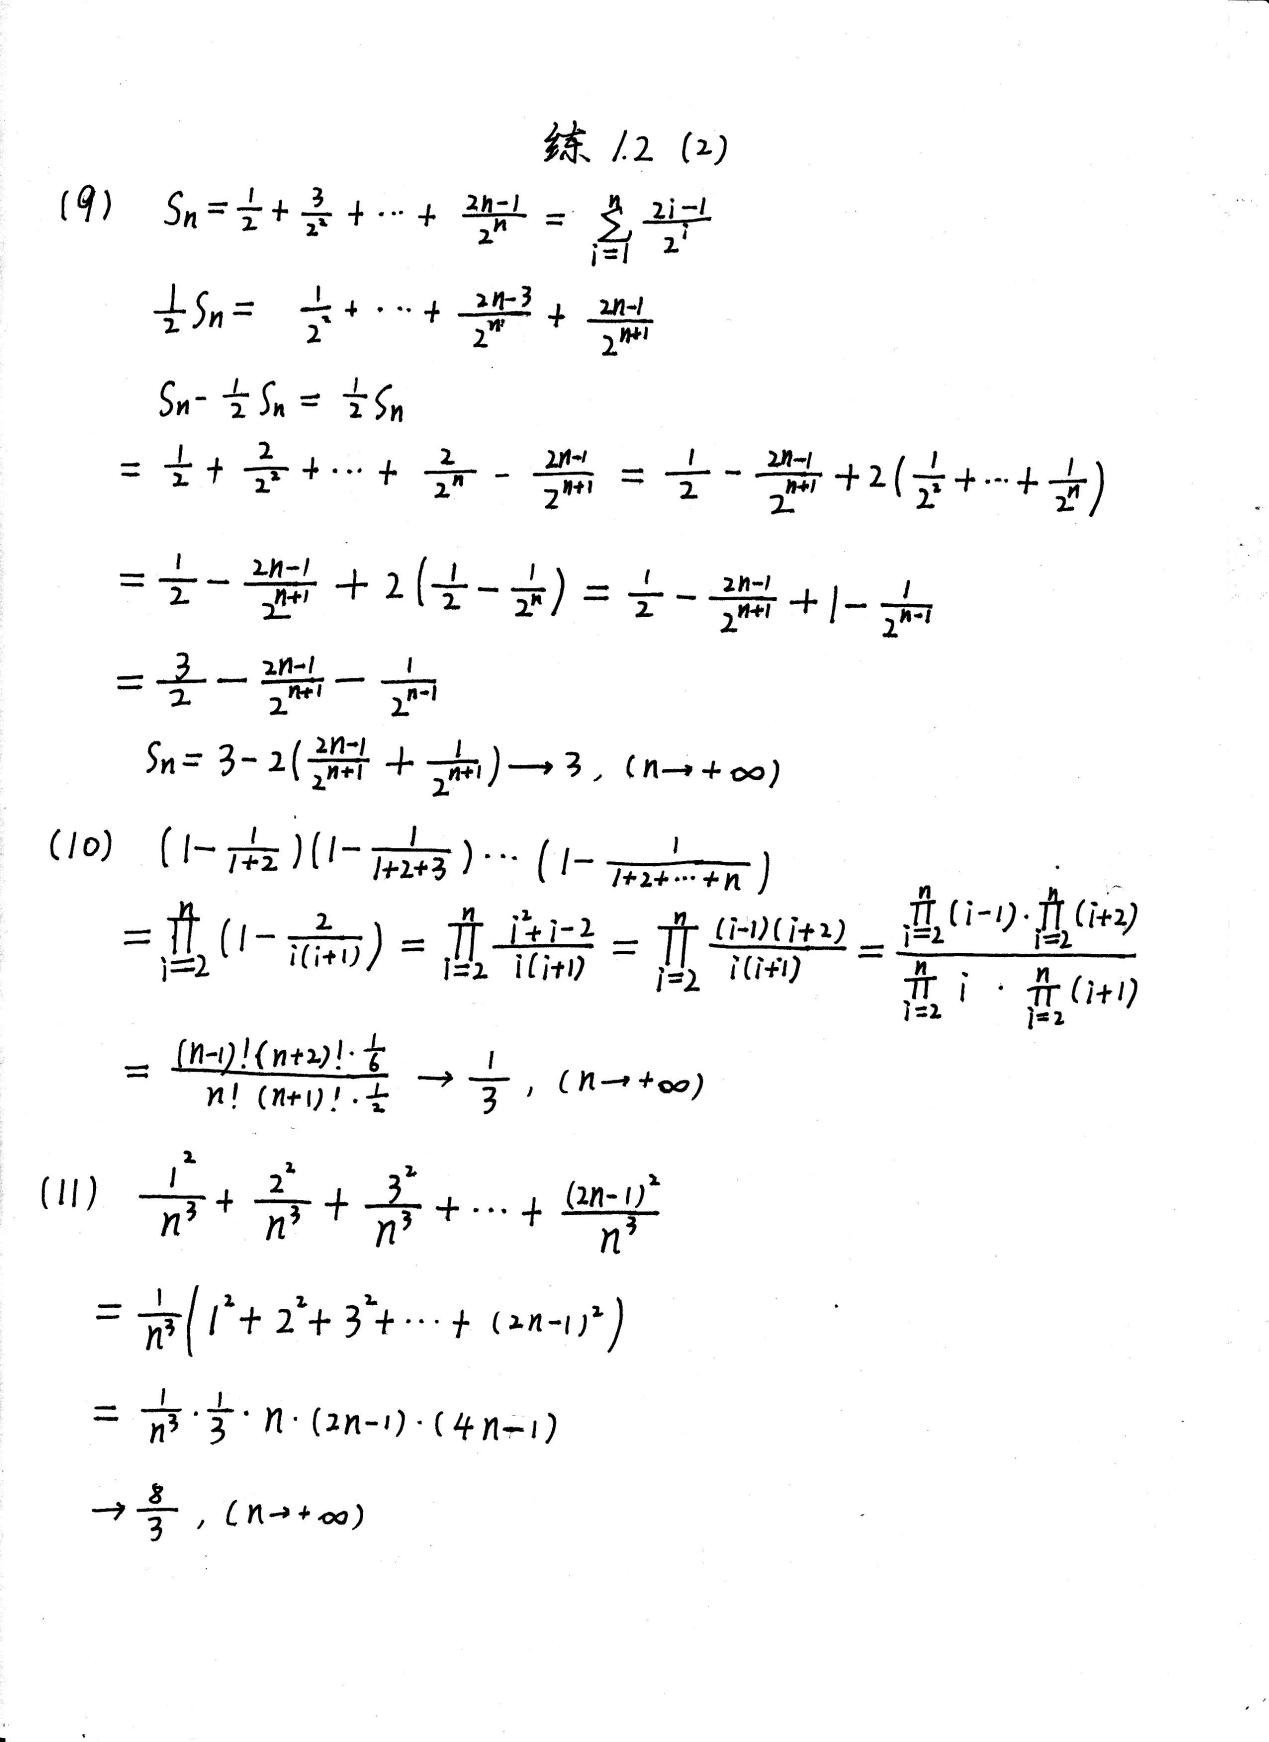 练 1.2 (2)
(9) Sn = 1/2 + 3/2² + ⋯ + (2n-1)/2ⁿ = ∑_{i=1}^{n} (2i-1)/2^i
1/2 Sn = 1/2² + ⋯ + (2n-3)/2ⁿ + (2n-1)/2^{n+1}
Sn - 1/2 Sn = 1/2 Sn
= 1/2 + 2/2² + ⋯ + 2/2ⁿ - (2n-1)/2^{n+1} = 1/2 - (2n-1)/2^{n+1} + 2(1/2² + ⋯ + 1/2ⁿ)
= 1/2 - (2n-1)/2^{n+1} + 2(1/2 - 1/2ⁿ) = 1/2 - (2n-1)/2^{n+1} + 1 - 1/2^{n-1}
= 3/2 - (2n-1)/2^{n+1} - 1/2^{n-1}
Sn = 3 - 2((2n-1)/2^{n+1} + 1/2^{n+1}) → 3, (n→+∞)
(10) (1 - 1/(1+2))(1 - 1/(1+2+3))⋯(1 - 1/(1+2+⋯+n))
= ∏_{i=2}^{n} (1 - 2/(i(i+1))) = ∏_{i=2}^{n} (i²+i-2)/(i(i+1)) = ∏_{i=2}^{n} ((i-1)(i+2))/(i(i+1)) = (∏_{i=2}^{n}(i-1)·∏_{i=2}^{n}(i+2))/(∏_{i=2}^{n} i · ∏_{i=2}^{n}(i+1))
= ((n-1)!(n+2)!·1/6)/(n!(n+1)!·1/2) → 1/3, (n→+∞)
(11) 1²/n³ + 2²/n³ + 3²/n³ + ⋯ + (2n-1)²/n³
= 1/n³(1² + 2² + 3² + ⋯ + (2n-1)²)
= 1/n³ · 1/3 · n · (2n-1) · (4n-1)
→ 8/3, (n→+∞)